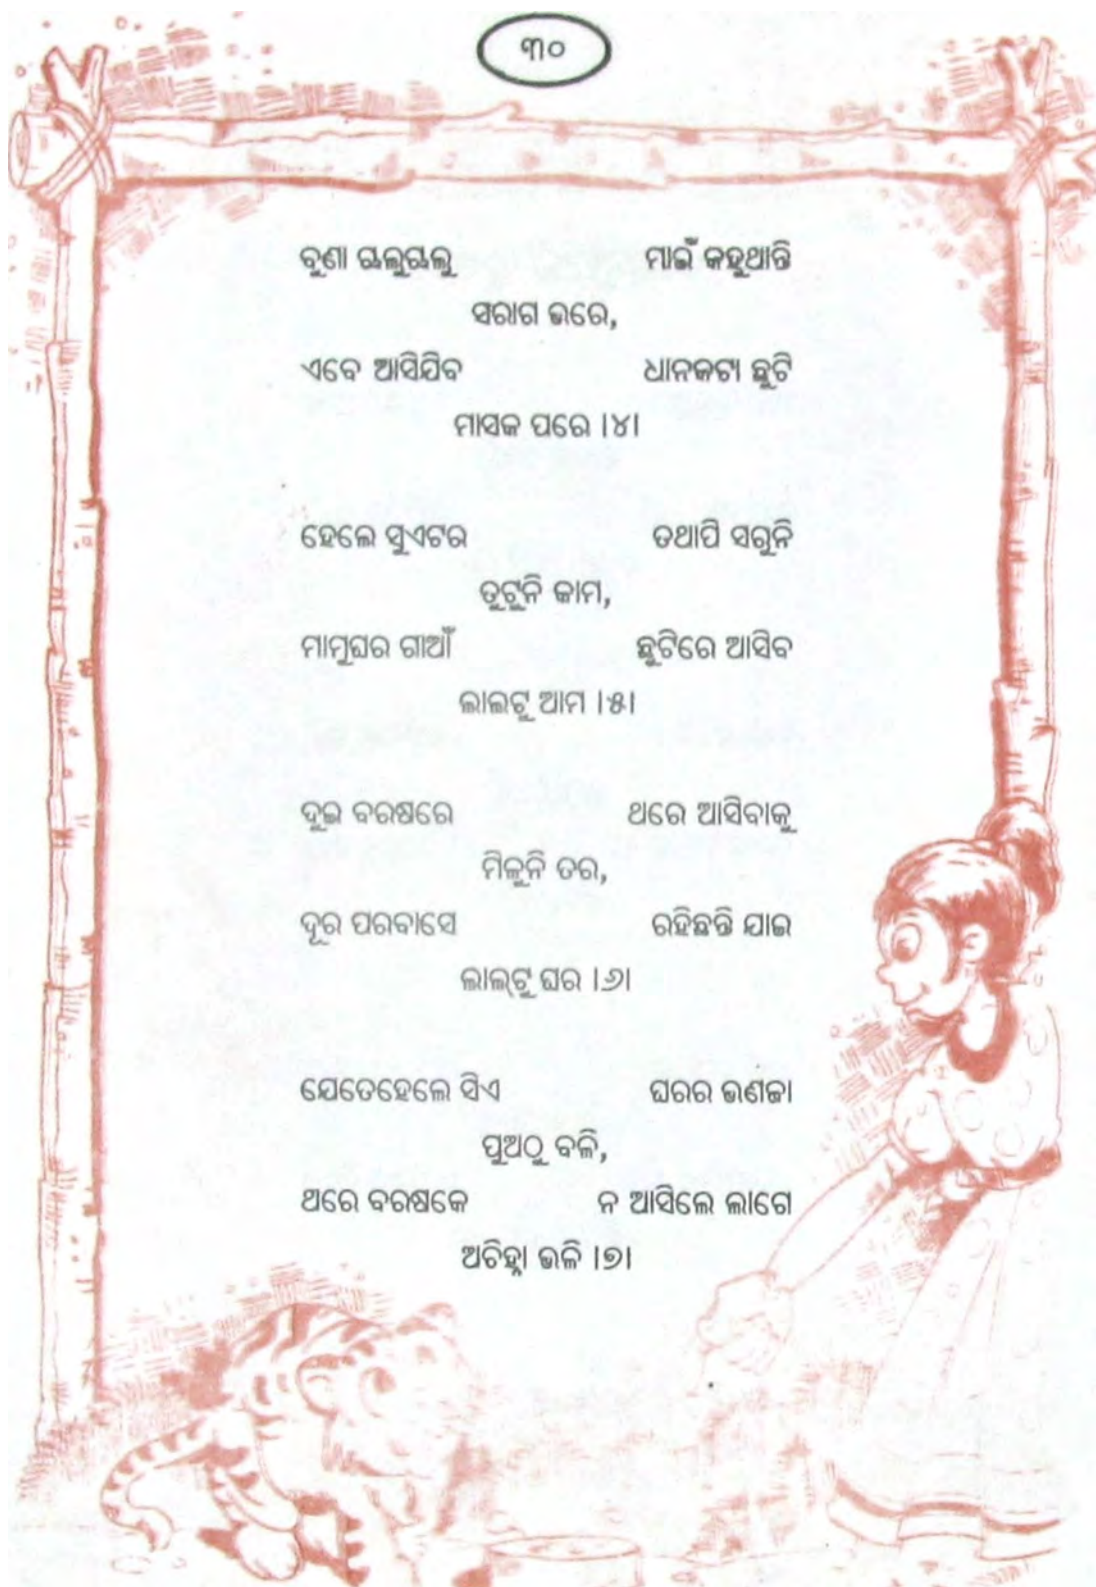 ୩୦
ବୁଣା ଚାଲୁଚାଲୁ ମାଇଁ କହୁଥାନ୍ତି
ସରାଗ ଭରେ,
ଏବେ ଆସିଯିବ ଧାନକଟା ଛୁଟି
ମାସକ ପରେ ।୪।
ହେଲେ ସୁଏଟର ତଥାପି ସରୁନି
ତୁଟୁନି କାମ,
ମାମୁଘର ଗାଆଁ ଛୁଟିରେ ଆସିବ
ଲାଲଟୁ ଆମ ।୫।
ଦୁଇ ବରଷରେ ଥରେ ଆସିବାକୁ
ମିଳୁନି ତର,
ଦୂର ପରବାସେ ରହିଛନ୍ତି ଯାଇ
ଲାଲ୍‌ଟୁ ଘର ।୬।
ଯେତେହେଲେ ସିଏ ଘରର ଭଣଜା
ପୁଅଠୁ ବଳି,
ଥରେ ବରଷକେ ନ ଆସିଲେ ଲାଗେ
ଅଚିହ୍ନା ଭଳି ।୭।